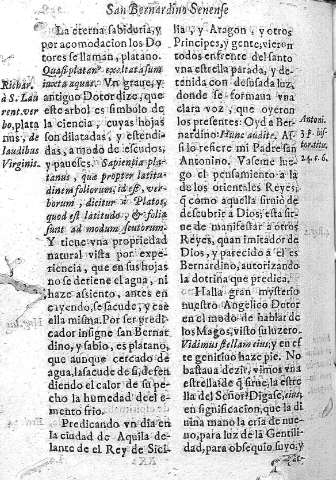 San Bernardino Senense
La eterna sabiduria, y
por acomodacion los Do
tores se llaman, platano.
Quasi platan⁹ exaltata sum
iuxta aquas. Vn graue, y
antiguo Dotor dize, que
este arbol es simbolo de
la ciencia, cuyas hojas
son dilatadas, y estendi-
das, a modo de escudos,
y paueses. Sapientia pla-
tanus, quæ propter latitu-
dinem foliorum, id est, ver-
borum, dicitur à Platos,
quod est latitudo, & folia
sunt ad modum scutorum.
Y tiene vna propriedad
natural vista por expe-
riencia, que en sus hojas
no se detiene el agua, ni
haze assiento, antes en
cayendo, se sacude, y cae
ella misma. Por ser predi-
cador insigne san Bernar
dino, y sabio, es platano,
que aunque cercado de
agua, la sacude de si, defen
diendo el calor de su pe-
cho la humedad del ele
mento frio.
Predicando vn dia en
la ciudad de Aquila de-
lante de el Rey de Sici
Richar.
à S. Lau
rent. ver
bo, plata
laudibus
Virginis.
lia, y Aragon, y otros
Principes, y gente, vieron
todos enfrente del santo
vna estrella parada, y de-
tenida con desusada luz,
donde se formaua vna
clara voz, que oyeron
los presentes: Oyd a Ber-
nardino: Hunc audite. As-
si lo refiere mi Padre san
Antonino. Vaseme lue-
go el pensamiento a la
de los orientales Reyes;
q̃ como aquella siruiò de
descubrir a Dios; esta sir-
ue de manifestar a otros
Reyes, quan imitador de
Dios, y parecido a el es
Bernardino, autorizando
la dotrina que predica.
Halla gran mysterio
nuestro Angelico Dotor
en el modo de hablar de
los Magos, visto su luzero.
Vidimus stellam eius, y en es
te genitiuo haze pie. No
bastaua dezir, vimos vna
estrella? de q̃ sirue, la estre
lla del Señor? Digase, eius,
en significacion, que la di
uina mano la cria de nue-
uo, para luz de la Gentili-
dad, para obsequio suyo, y
Antoni.
3 p. his
toria tit.
24. c. 6.